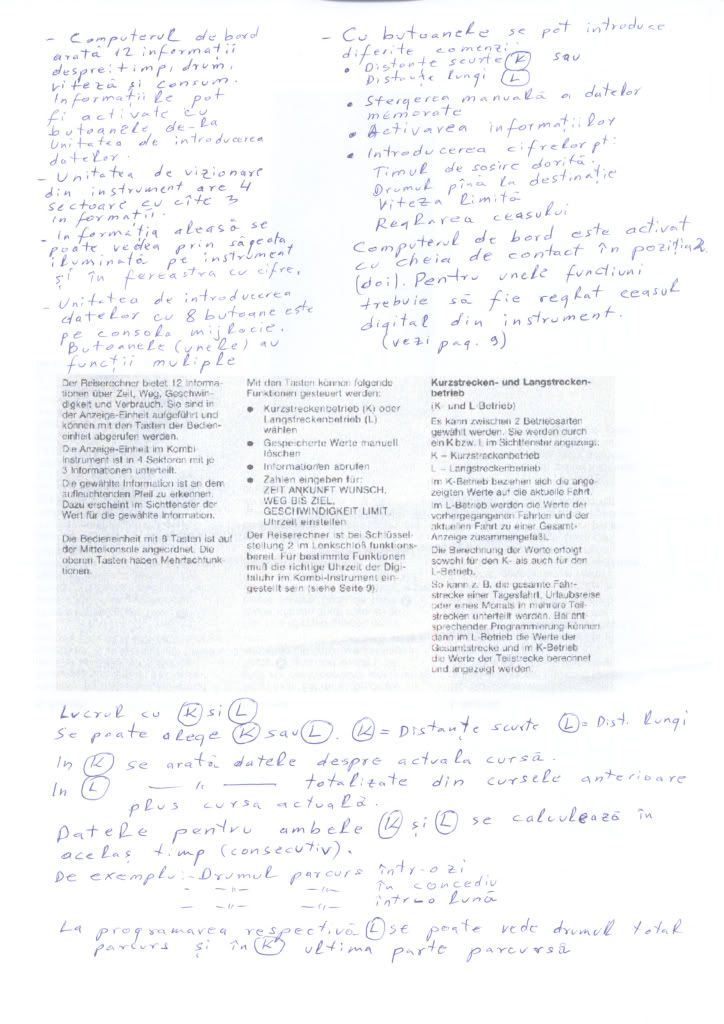 - Computerul de bord
arată 12 informații
despre: timp, drum,
viteză și consum.
Informațiile pot
fi activate cu
butoanele de-la
Unitatea de introducerea
datelor.
- Unitatea de vizionare
din instrument are 4
sectoare cu cîte 3
informații.
- Informația aleasă se
poate vedea prin săgeata
iluminată pe instrument
și în fereastra cu cifre.
- Unitatea de introducerea
datelor cu 8 butoane este
pe consola mijlocie.
Butoanele (unele) au
funcții muliple
- Cu butoanele se pot introduce
diferite comenzi:
• Distanțe scurte (K) sau
Distanțe lungi (L)
• Stergerea manuală a datelor
memorate
• Activarea informațiilor
• Introducerea cifrelor pt:
Timul de sosire dorită.
Drumul pînă la destinație
Viteza limită
Reglarea ceasului
Computerul de bord este activat
cu cheia de contact în poziția 2
(doi). Pentru unele funcțiuni
trebuie să fie reglat ceasul
digital din instrument.
(vezi pag. 9)
Der Reiserechner bietet 12 Informa-
tionen über Zeit, Weg, Geschwin-
digkeit und Verbrauch. Sie sind in
der Anzeige-Einheit aufgeführt und
können mit den Tasten der Bedien-
einheit abgerufen werden.
Die Anzeige-Einheit im Kombi-
Instrument ist in 4 Sektoren mit je
3 Informationen unterteilt.
Die gewählte Information ist an dem
aufleuchtenden Pfeil zu erkennen.
Dazu erscheint im Sichtfenster der
Wert für die gewählte Information.
Die Bedieneinheit mit 8 Tasten ist auf
der Mittelkonsole angeordnet. Die
oberen Tasten haben Mehrfachfunk-
tionen.
Mit den Tasten können folgende
Funktionen gesteuert werden:
• Kurzstreckenbetrieb (K) oder
Langstreckenbetrieb (L)
wählen
• Gespeicherte Werte manuell
löschen
• Informationen abrufen
• Zahlen eingeben für:
ZEIT ANKUNFT WUNSCH,
WEG BIS ZIEL,
GESCHWINDIGKEIT LIMIT,
Uhrzeit einstellen
Der Reiserechner ist bei Schlüssel-
stellung 2 im Lenkschloß funktions-
bereit. Für bestimmte Funktionen
muß die richtige Uhrzeit der Digi-
taluhr im Kombi-Instrument ein-
gestellt sein (siehe Seite 9).
Kurzstrecken- und Langstrecken-
betrieb
(K- und L-Betrieb)
Es kann zwischen 2 Betriebsarten
gewählt werden. Sie werden durch
ein K bzw. L im Sichtfenster angezeigt.
K – Kurzstreckenbetrieb
L – Langstreckenbetrieb
Im K-Betrieb beziehen sich die ange-
zeigten Werte auf die aktuelle Fahrt.
Im L-Betrieb werden die Werte der
vorhergegangenen Fahrten und der
aktuellen Fahrt zu einer Gesamt-
Anzeige zusammengefaßt.
Die Berechnung der Werte erfolgt
sowohl für den K- als auch für den
L-Betrieb.
So kann z. B. die gesamte Fahr-
strecke einer Tagesfahrt, Urlaubsreise
oder eines Monats in mehrere Teil-
strecken unterteilt werden. Bei ent-
sprechender Programmierung können
dann im L-Betrieb die Werte der
Gesamtstrecke und im K-Betrieb
die Werte der Teilstrecke berechnet
und angezeigt werden.
Lucrul cu (K) si (L)
Se poate alege (K) sau (L). (K) = Distanțe scurte (L) = Dist. lungi
In (K) se arată datele despre actuala cursă.
In (L) — " — totalizate din cursele anterioare
plus cursa actuală.
Datele pentru ambele (K) și (L) se calculează în
acelaș timp (consecutiv).
De exemplu: - Drumul parcurs într-o zi
- -"- -"- în concediu
- -"- -"- într-o lună
La programarea respectivă (L) se poate vede drumul total
parcurs și în (K) ultima parte parcursă